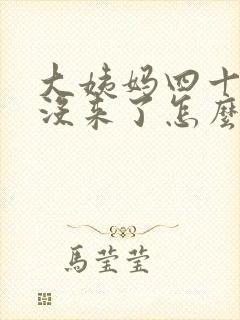 大姨妈四十
没来了怎麽
馬莹莹